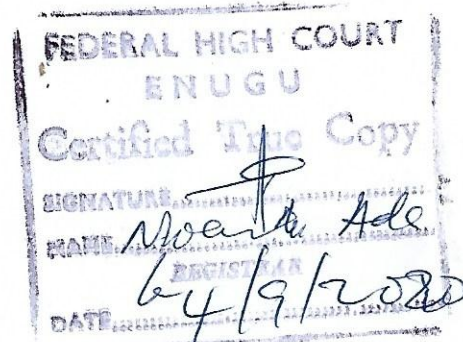 FEDERAL HIGH COURT
ENUGU
Certified True Copy
SIGNATURE
NAME Ada
REGISTRAR
DATE 4/9/2020